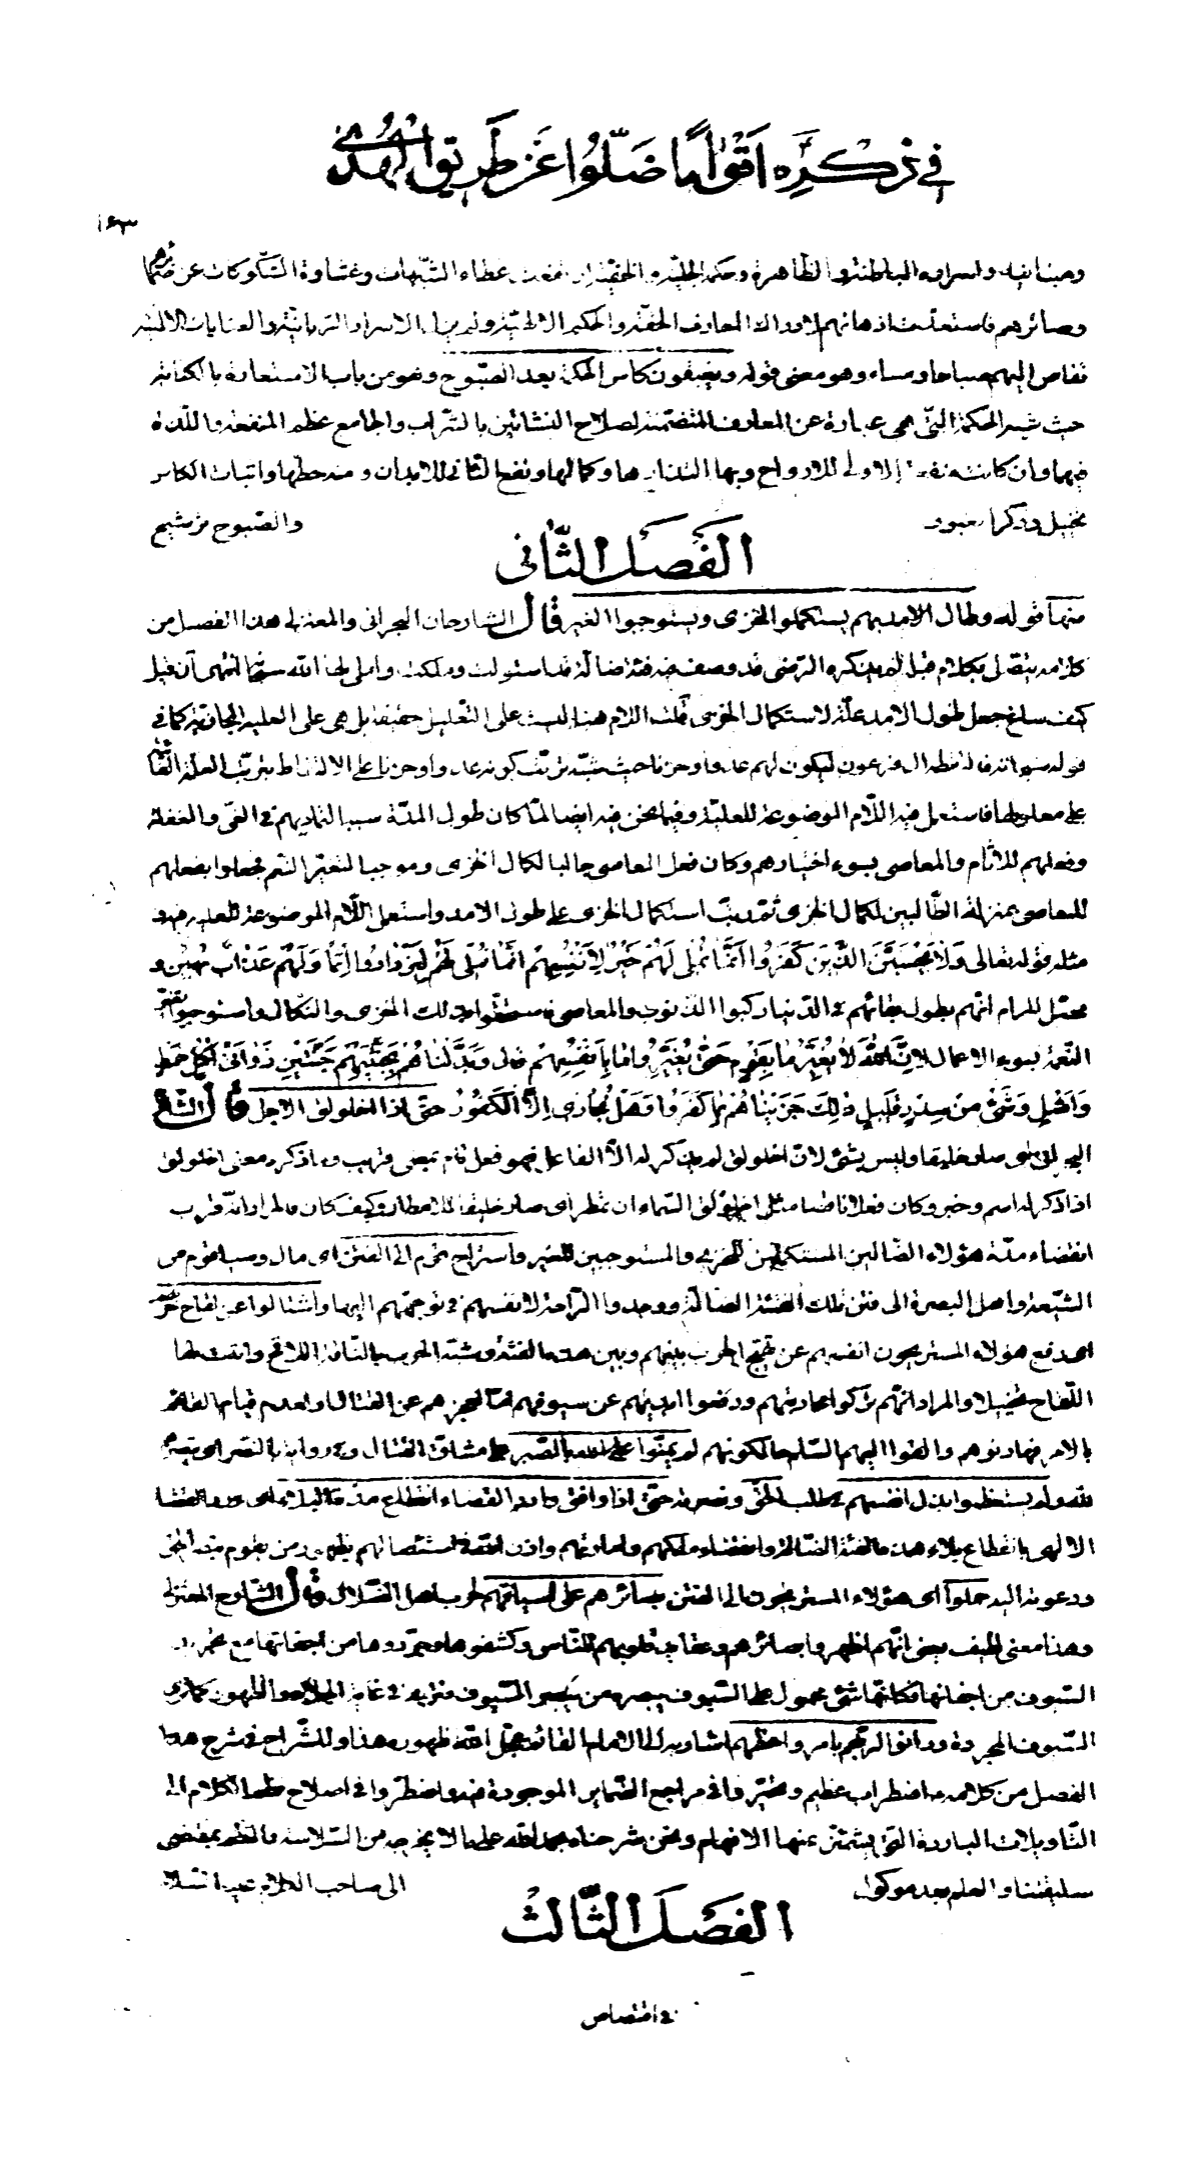 في ذكره اقواما ضلوا عن طريق الهدى
١٤٣
الباطنة والظاهرة عطاء الشبهات وغشاوة الشكوكات عن ضمائرهم
وبصائرهم فاستعدت اذهانهم لادراك المعارف الحقة والحكم الالهية ولم يزل الاسرار الربانية والعنايات الالهية
تفاض اليهم صباحا ومساء وهو معنى قوله ويغبقون كاس الحكمة بعد الصبوح وهو من باب الاستعارة بالكناية
حيث شبه الحكمة التي هي عبارة عن المعارف المتضمنة لصلاح النشأتين بالشراب والجامع عظم المنفعة واللذة
فيهما وان كانت منفعة الاولى للارواح وبها التذاذها وكمالها ونفع الثاني للابدان ومنه حظها واثبات الكاس
تخييل وذكر الغبوق
والصبوح ترشيح
الفصل الثانى
منها قوله وطال الامد بهم ليستكملوا الخزى ويستوجبوا الغير قال الشارحان البحراني والمعتزلى هذا الفصل من
كلامه يتصل بكلام قبله لم يذكره الرضى قد وصف فيه فئة ضالة قد استولت وملكت واملى لها الله سبحانه انتهى فان قيل
كيف ساغ جعل طول الامد علة لاستكمال الخزى قلت اللام هنا ليست على التعليل حقيقة بل هي على العلية المجازية كما في
قوله سبحانه فالتقطه آل فرعون ليكون لهم عدوا وحزنا حيث شبه ترتب كونه عدوا وحزنا على الالتقاط بترتب العلة الغائية
على معلولها فاستعمل فيه اللام الموضوعة للعلية وفيما نحن فيه ايضا لما كان طول المدة سببا لتماديهم في الغى والغفلة
وفعلهم للآثام والمعاصى بسوء اختيارهم وكان فعل المعاصى جالبا لكمال الخزى وموجبا لتغير النعم فجعلوا بفعلهم
للمعاصى بمنزلة الطالبين لكمال الخزى ثم رتب استكمال الخزى على طول الامد واستعمل اللام الموضوعة للعلية فيه و
مثله قوله تعالى ولا يحسبن الذين كفروا انما نملى لهم خير لانفسهم انما نملى لهم ليزدادوا اثما ولهم عذاب مهين و
محصل المرام انهم بطول بقائهم في الدنيا ركبوا الذنوب والمعاصى فاستحقوا بذلك الخزى والنكال واستوجبوا تغير
النعمة بسوء الاعمال لان الله لا يغير ما بقوم حتى يغيروا ما بانفسهم قال وبدلناهم بجنتيهم جنتين ذواتى اكل خمط
واثل وشئ من سدر قليل ذلك جزيناهم بما كفروا وهل نجازى الا الكفور حتى اذا اخلولق الاجل قال الشارح
البحراني اى صار خليقا وليس بشئ لان اخلولق لم يذكر له الا الفاعل فهو فعل تام بمعنى قرب وما ذكره معنى اخلولق
اذا ذكر له اسم وخبر وكان فعلا ناقصا مثل اخلولق السماء ان تمطر اى صار خليقا للامطار وكيف كان فالمراد انه قرب
انقضاء مدة هؤلاء الضالين المستكملين للخزى والمستوجبين للغير واستراح قوم الى الفتن اى مال وصبا قوم من
الشيعة واهل البصرة الى فتن تلك الفئة الضالة ووجدوا الراحة لانفسهم في توجههم اليها واشتالوا عن لقاح حربهم
اى رفع هؤلاء المستريحون انفسهم عن تهيج الحرب بينهم وبين هذه الفئة وشبه الحرب بالناقة اللاقح واثبت لها
اللقاح تخييلا والمراد انهم تركوا محاربتهم ورفعوا ايديهم عن سيوفهم اما لعجزهم عن القتال او لعدم قيام القائم
بالامر فهادنوهم والقوا اليهم السلم حالكونهم لم يمنوا على الله بالصبر على مشاق القتال وفي رواية بالنصر اى بنصرهم
لله ولم يستعظموا بذل انفسهم في طلب الحق ونصرته حتى اذا وافق وارد القضاء انقطاع مدة البلاء اى ورد القضاء
الالهى بانقطاع بلاء هذه الفئة الضالة وانقضاء ملكهم وامارتهم واذن الله في استئصالهم بظهور من يقوم بنصر الحق
ودعوته اليه حملوا اى هؤلاء المستريحون الى الفتن بصائرهم على اسيافهم لحرب اهل الضلال قال الشارح المعتزلى
وهذا معنى لطيف يعنى انهم اظهروا بصائرهم وعقايد قلوبهم للناس وكشفوها وجردوها من اجفانها مع تجريد
السيوف من اجفانها فكانها شئ محمول على السيوف يبصره من يبصر السيوف فترى في غاية الجلاء والظهور كما ترى
السيوف المجردة ودانوا لربهم بامر واعظهم اشارة الى الامام القائم عجل الله ظهوره هذا وللشراح في شرح هذا
الفصل من كلامه اضطراب عظيم وتحيروا في مراجع الضماير الموجودة فيه واضطروا في اصلاح نظم الكلام الى
التاويلات الباردة التى يشمئز عنها الافهام ونحن شرحناه بحمد الله على ما لا يخرجه من السلاسة والنظم بمقتضى
سليقتنا والعلم بعد موكول
الى صاحب الكلام عليه السلام
الفصل الثالث
في اختصاص